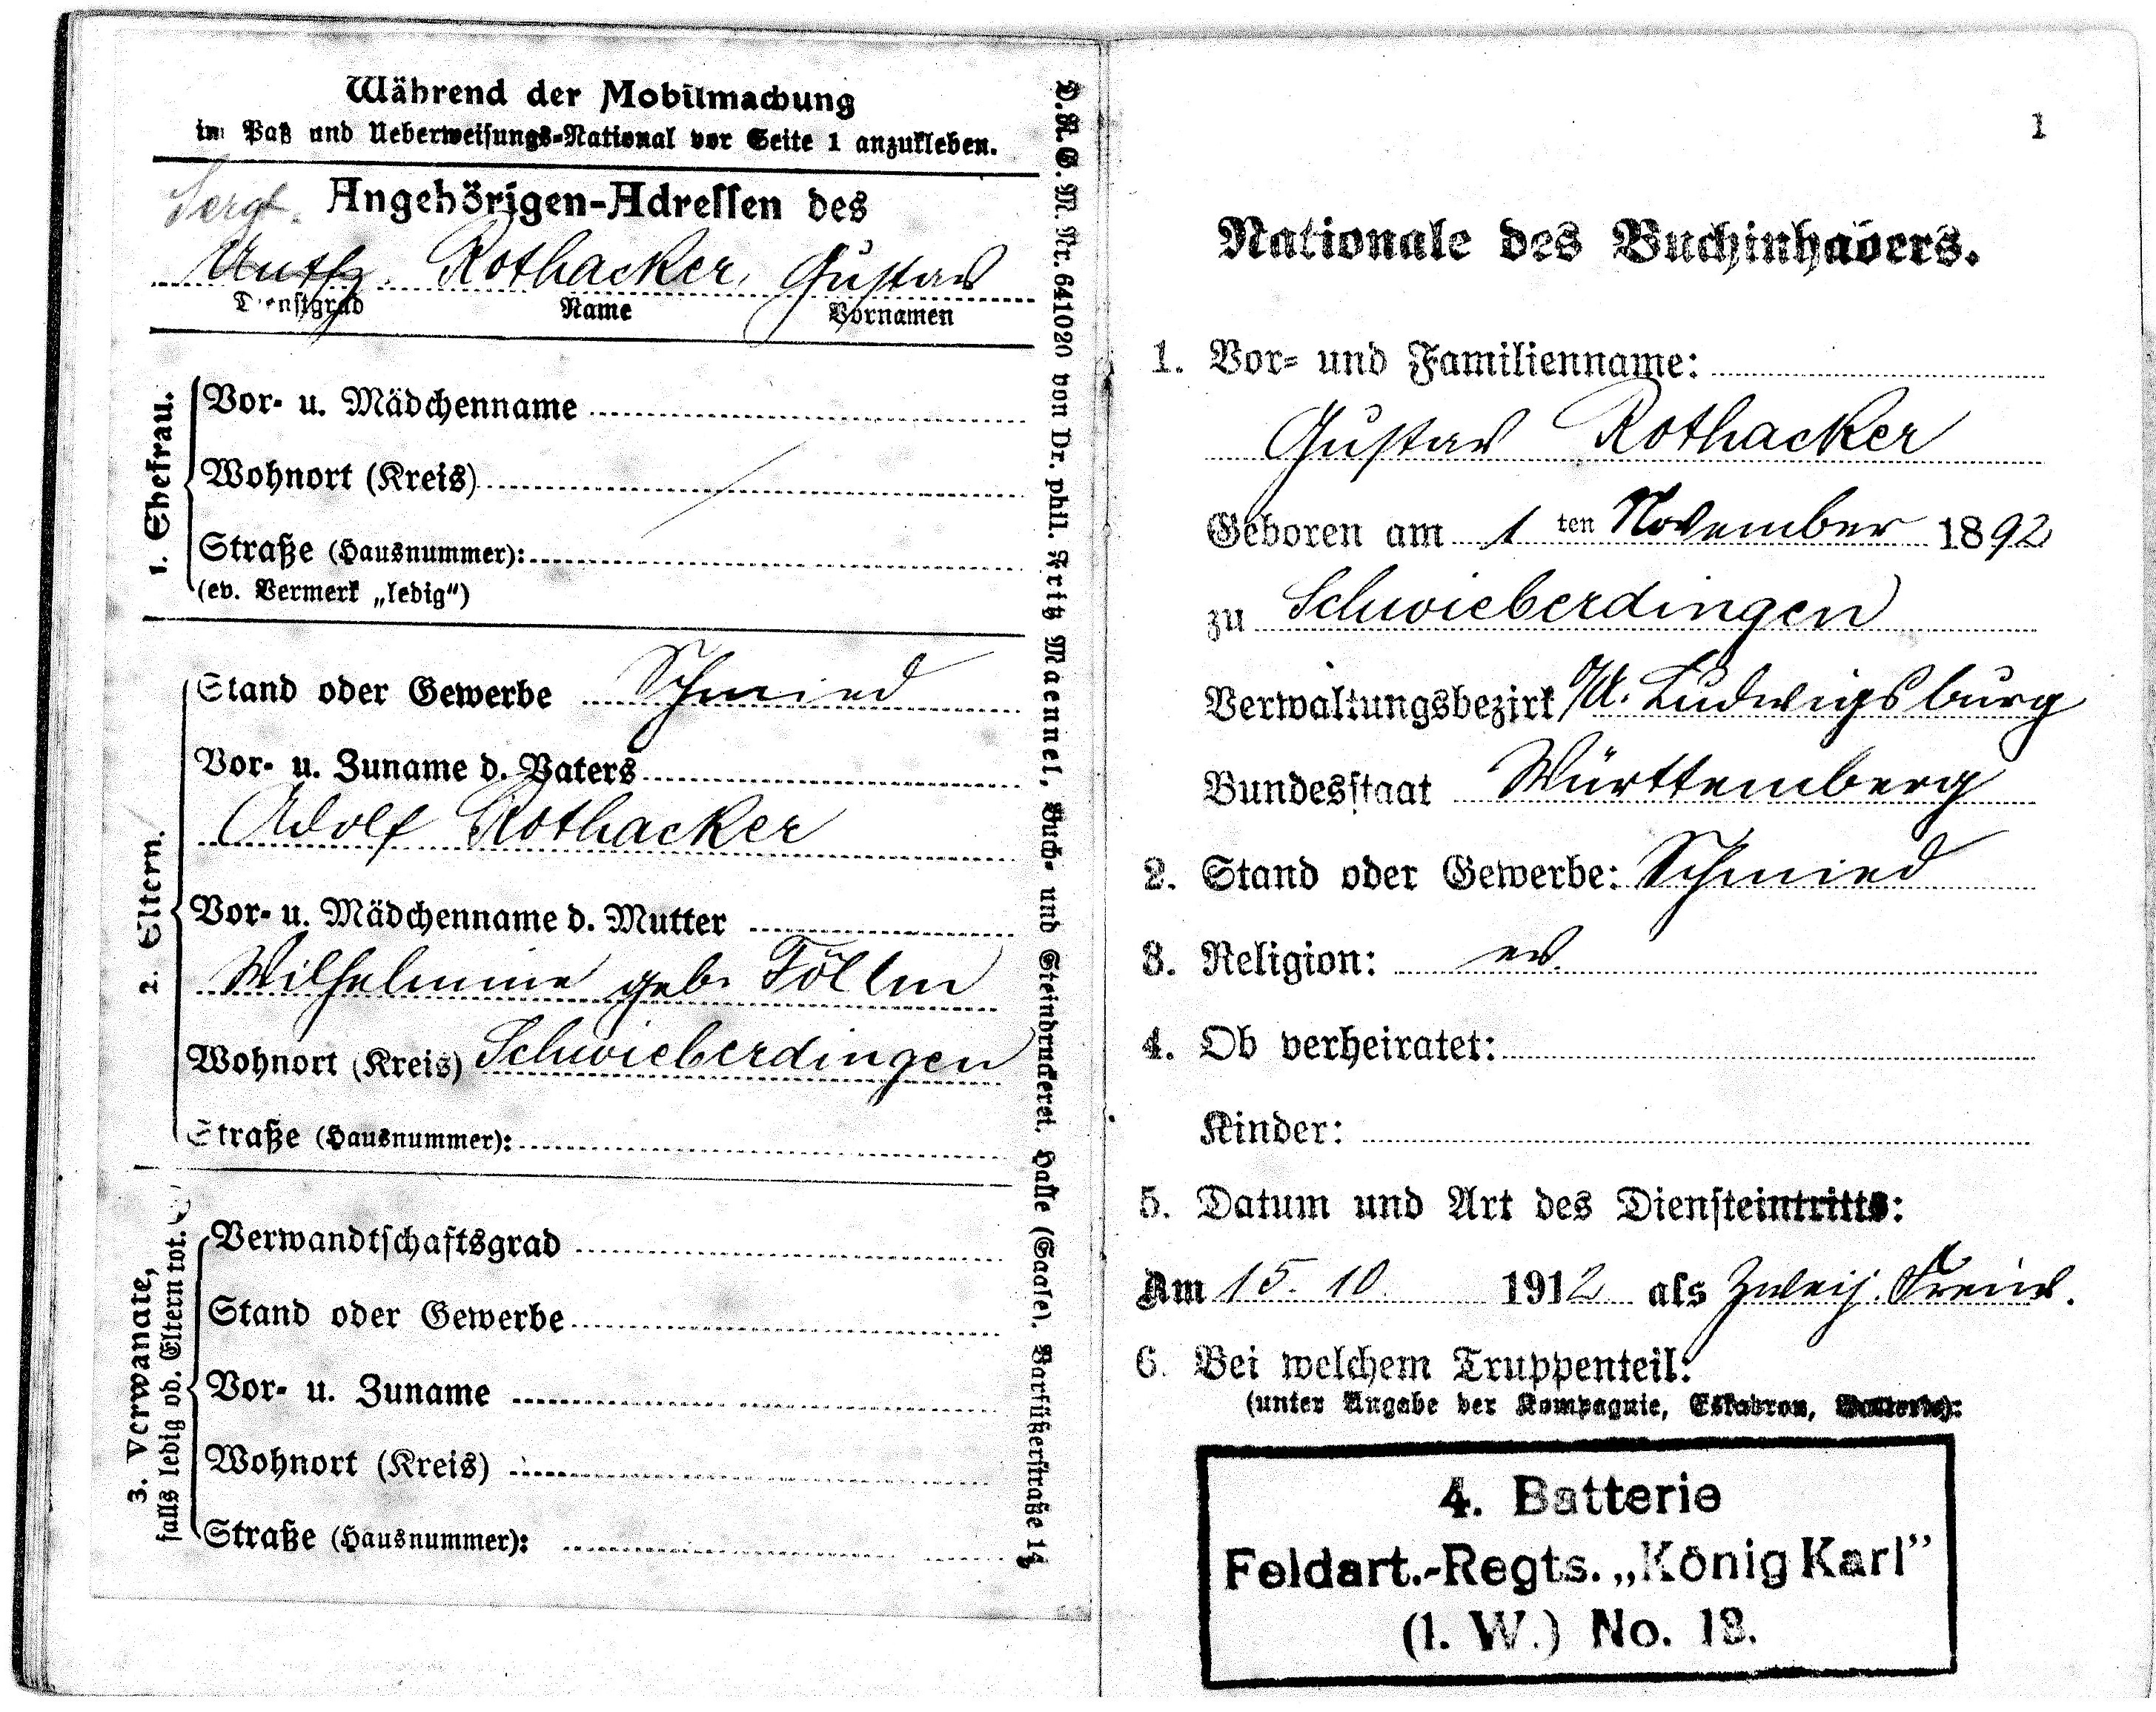 Während der Mobilmachung
im Paß und Ueberweisungs-National vor Seite 1 anzukleben.
Sergt. Angehörigen-Adressen des
Untffz. Rothacker, Gustav
Dienstgrad Name Vornamen
1. Ehefrau.
Vor- u. Mädchenname
Wohnort (Kreis)
Straße (Hausnummer):
(ev. Vermerk „ledig“)
2. Eltern.
Stand oder Gewerbe Schmied
Vor- u. Zuname d. Vaters
Adolf Rothacker
Vor- u. Mädchenname d. Mutter
Wilhelmine geb.
Wohnort (Kreis) Schwieberdingen
Straße (Hausnummer):
3. Verwandte,
falls ledig od. Eltern tot.
Verwandtschaftsgrad
Stand oder Gewerbe
Vor- u. Zuname
Wohnort (Kreis)
Straße (Hausnummer):
D.R.G.M. Nr. 641020 von Dr. phil. Fritz Maennel, Buch- und Steindruckerei, Halle (Saale). Barfüßerstraße
1
Nationale des Buchinhabers.
1. Vor- und Familienname:
Gustav Rothacker
Geboren am 1 ten November 1892
zu Schwieberdingen
Verwaltungsbezirk O/A. Ludwigsburg
Bundesstaat Württemberg
2. Stand oder Gewerbe: Schmied
3. Religion: ev.
4. Ob verheiratet:
Kinder:
5. Datum und Art des Diensteintritts:
Am 15. 10. 1912 als Zweij. Freiw.
6. Bei welchem Truppenteil:
(unter Angabe der Kompagnie, Eskadron, Batterie):
4. Batterie
Feldart.-Regts. „König Karl”
(1. W.) No. 13.